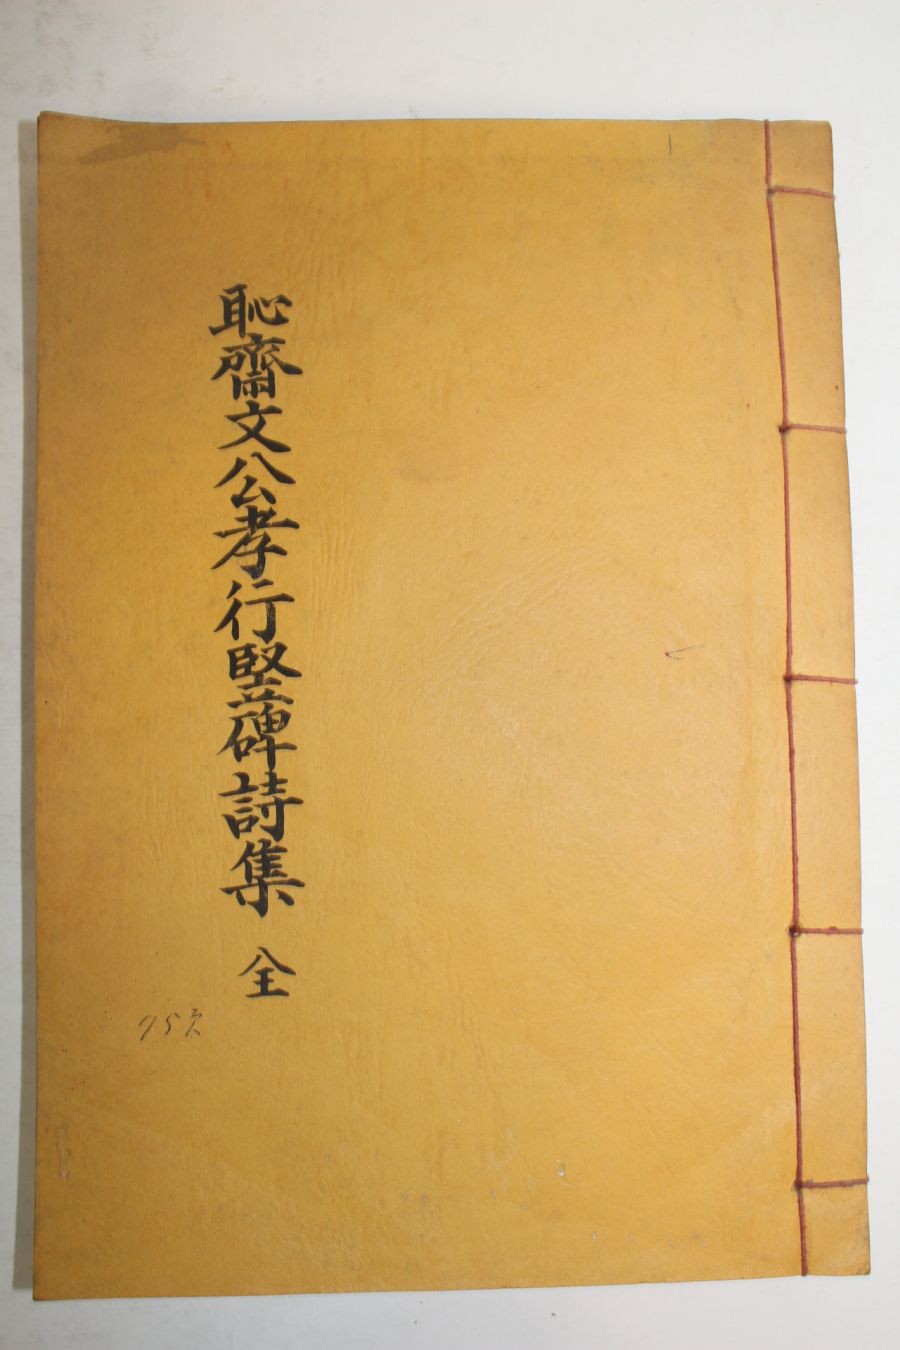 恥齋文公孝行竪碑詩集 全